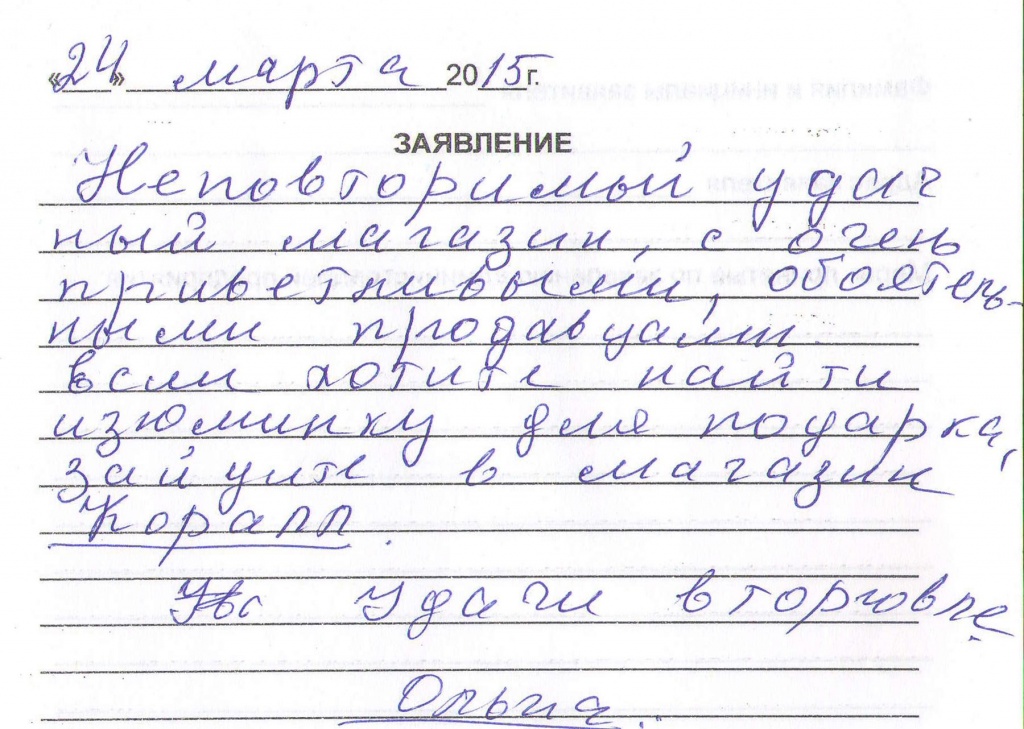 «24» марта 2015 г.
ЗАЯВЛЕНИЕ
Неповторимый удач
ный магазин с очень
приветливыми, обоятель-
ными продавцами.
Если хотите найти
изюминку для подарка,
зайдите в магазин
Коралл.
Удачи в торговле
Ольга..